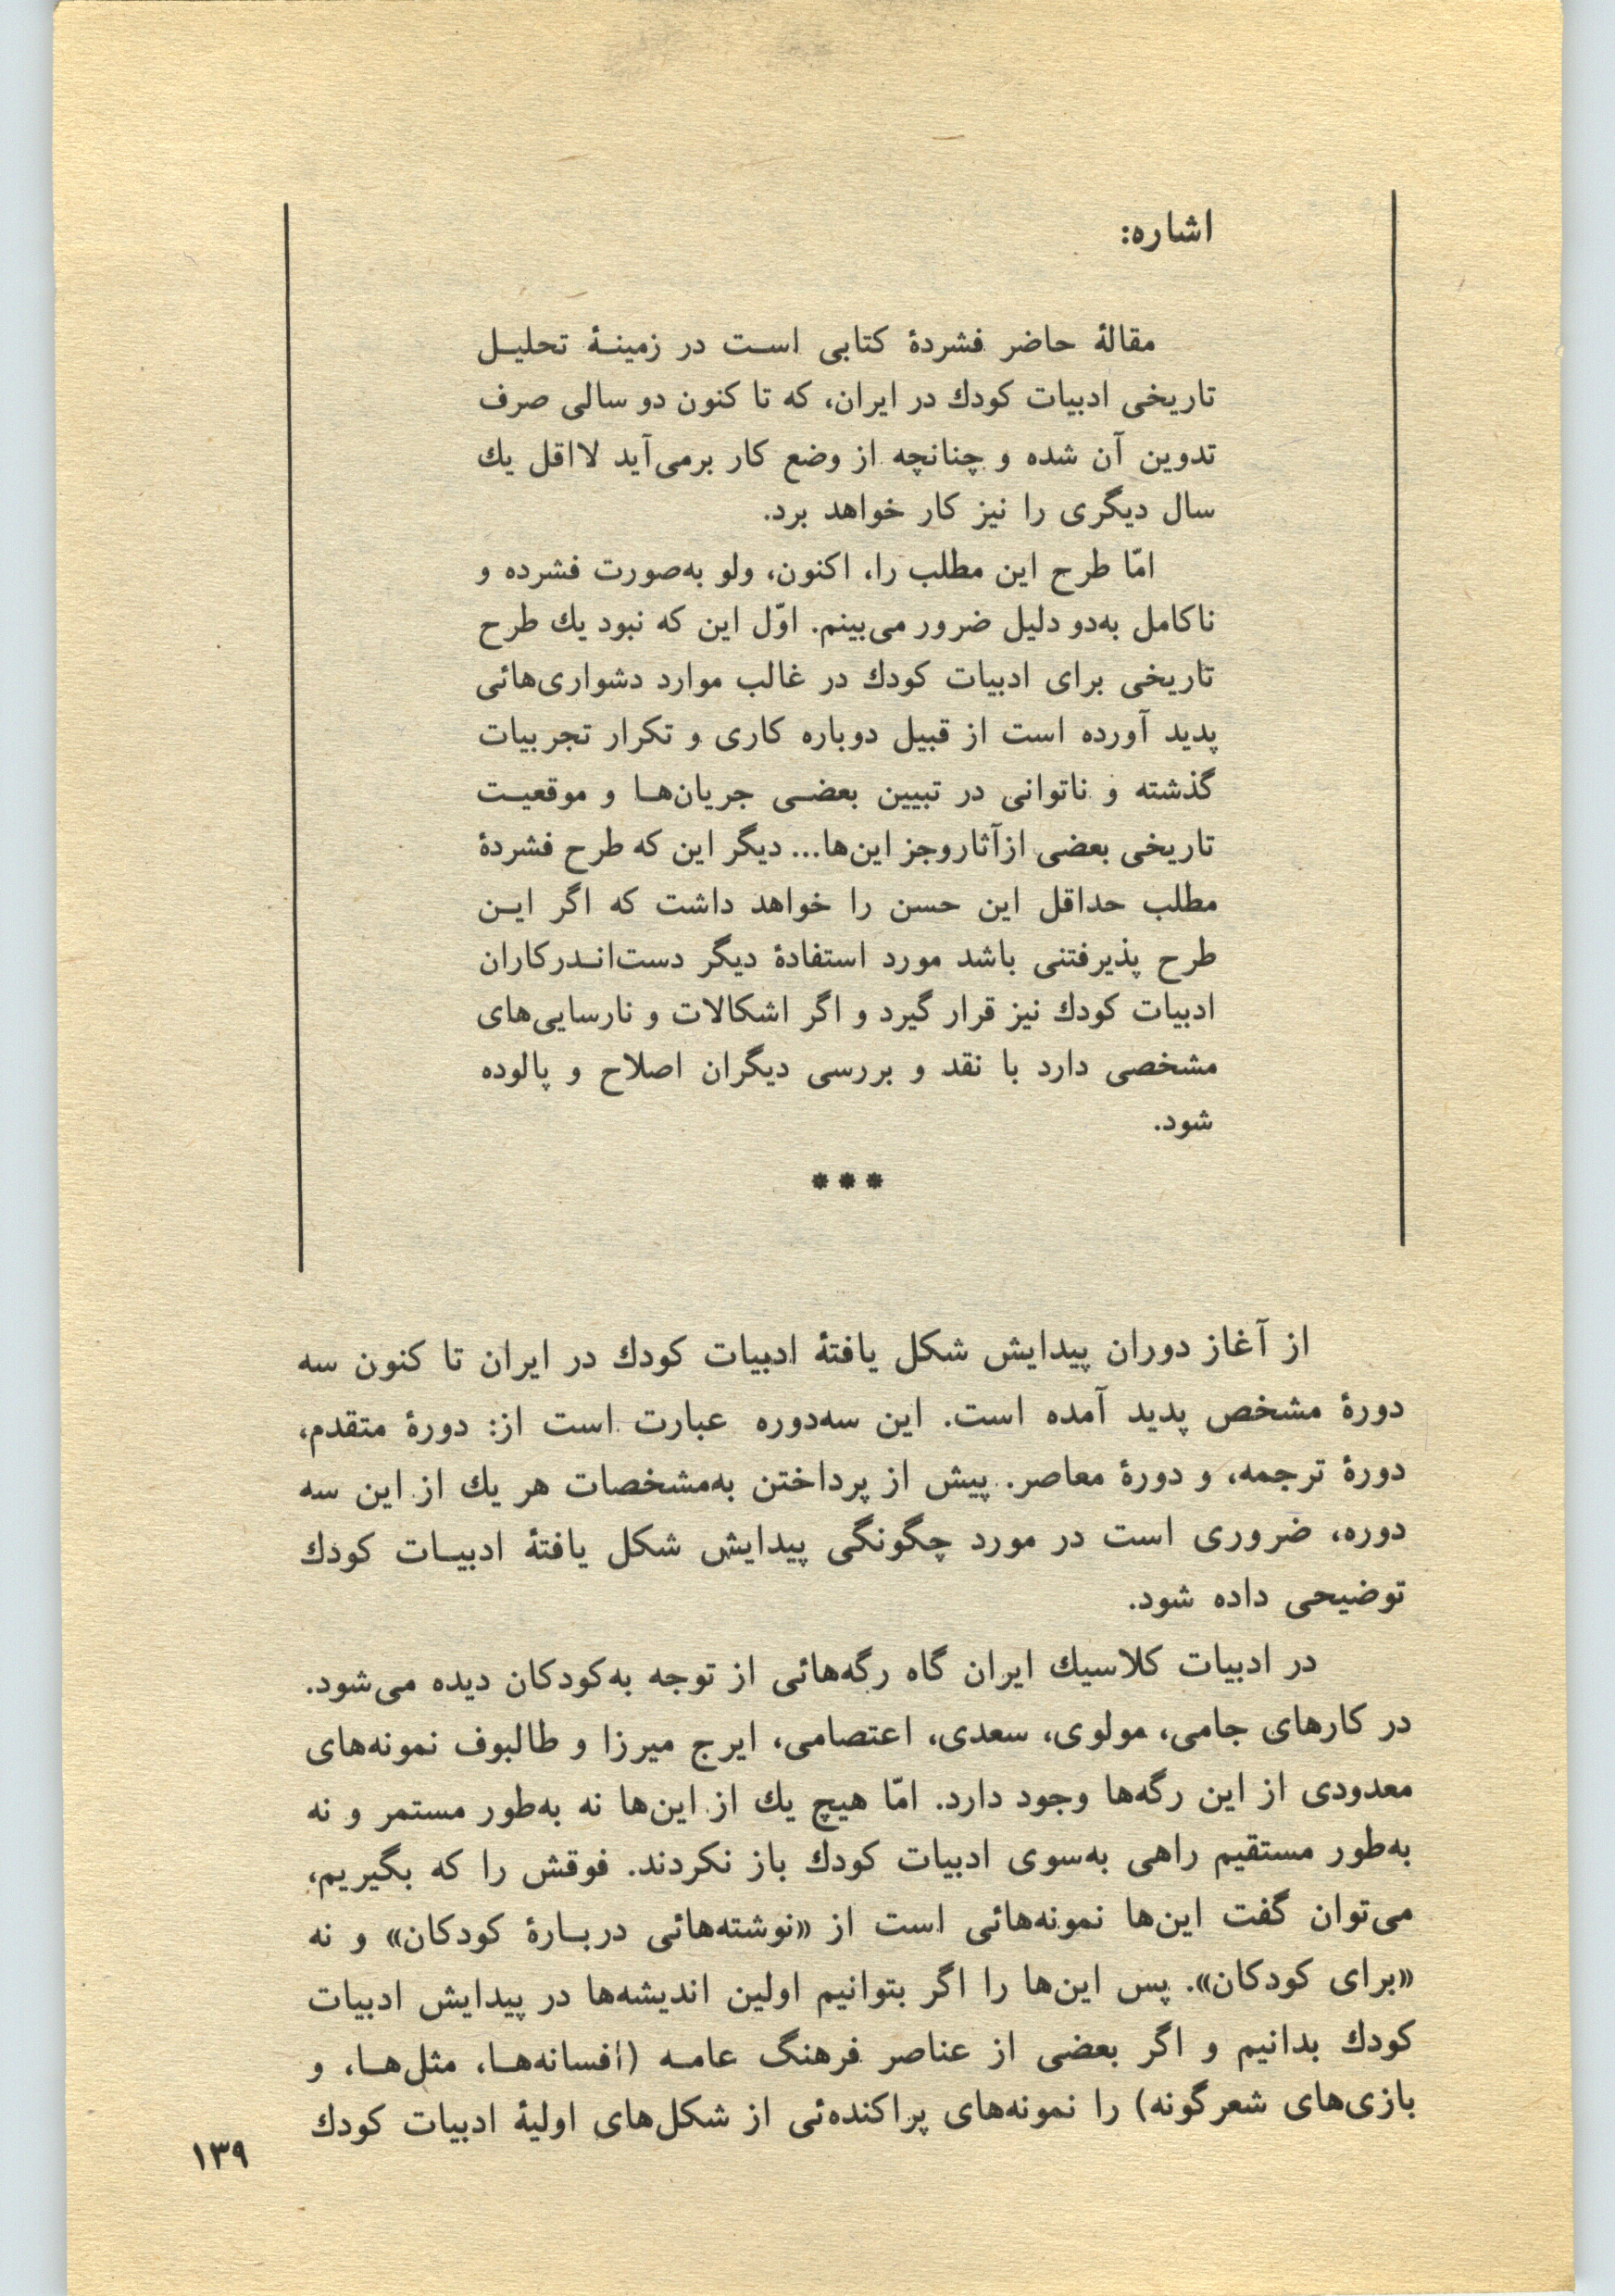 اشاره:
مقالهٔ حاضر فشردهٔ کتابی است در زمینهٔ تحلیل
تاریخی ادبیات کودك در ایران، که تا کنون دو سالی صرف
تدوین آن شده و چنانچه از وضع کار برمی‌آید لااقل یك
سال دیگری را نیز کار خواهد برد.
امّا طرح این مطلب را، اکنون، ولو به‌صورت فشرده و
ناکامل به‌دو دلیل ضرور می‌بینم. اوّل این که نبود یك طرح
تاریخی برای ادبیات کودك در غالب موارد دشواری‌هائی
پدید آورده است از قبیل دوباره کاری و تکرار تجربیات
گذشته و ناتوانی در تبیین بعضی جریان‌ها و موقعیت
تاریخی بعضی ازآثاروجز این‌ها... دیگر این که طرح فشردهٔ
مطلب حداقل این حسن را خواهد داشت که اگر این
طرح پذیرفتنی باشد مورد استفادهٔ دیگر دست‌اندرکاران
ادبیات کودك نیز قرار گیرد و اگر اشکالات و نارسایی‌های
مشخصی دارد با نقد و بررسی دیگران اصلاح و پالوده
شود.
***
از آغاز دوران پیدایش شکل یافتهٔ ادبیات کودك در ایران تا کنون سه
دورهٔ مشخص پدید آمده است. این سه‌دوره عبارت است از: دورهٔ متقدم،
دورهٔ ترجمه، و دورهٔ معاصر. پیش از پرداختن به‌مشخصات هر یك از این سه
دوره، ضروری است در مورد چگونگی پیدایش شکل یافتهٔ ادبیات کودك
توضیحی داده شود.
در ادبیات کلاسیك ایران گاه رگه‌هائی از توجه به‌کودکان دیده می‌شود.
در کارهای جامی، مولوی، سعدی، اعتصامی، ایرج میرزا و طالبوف نمونه‌های
معدودی از این رگه‌ها وجود دارد. امّا هیچ یك از این‌ها نه به‌طور مستمر و نه
به‌طور مستقیم راهی به‌سوی ادبیات کودك باز نکردند. فوقش را که بگیریم،
می‌توان گفت این‌ها نمونه‌هائی است از «نوشته‌هائی دربارهٔ کودکان» و نه
«برای کودکان». پس این‌ها را اگر بتوانیم اولین اندیشه‌ها در پیدایش ادبیات
کودك بدانیم و اگر بعضی از عناصر فرهنگ عامه (افسانه‌ها، مثل‌ها، و
بازی‌های شعرگونه) را نمونه‌های پراکنده‌ئی از شکل‌های اولیهٔ ادبیات کودك
۱۳۹